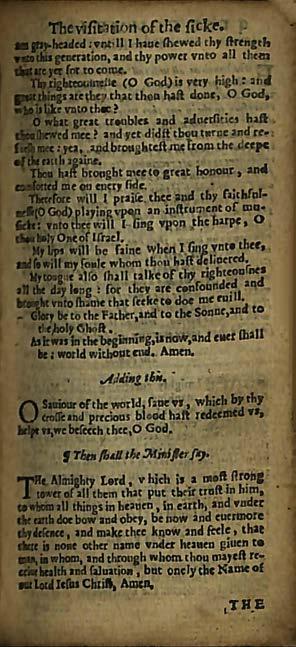 The visitation of the sicke.
am gray-headed: vntill I haue shewed thy strength
vnto this generation, and thy power vnto all them
that are yet for to come.
Thy righteousnesse (O God) is very high: and
great things are they that thou hast done, O God,
who is like vnto thee?
O what great troubles and aduersities hast
thou shewed mee? and yet didst thou turne and re-
fresh mee: yea, and broughtest me from the deepe
of the earth againe.
Thou hast brought mee to great honour, and
comforted me on euery side.
Therefore will I praise thee and thy faithful-
nesse (O God) playing vpon an instrument of mu-
sicke: vnto thee will I sing vpon the harpe, O
thou holy One of Israel.
My lips will be faine when I sing vnto thee,
and so will my soule whom thou hast deliuered.
My tongue also shall talke of thy righteousnes
all the day long: for they are confounded and
brought vnto shame that seeke to doe me euill.
Glory be to the Father, and to the Sonne, and to
the holy Ghost.
As it was in the beginning, is now, and euer shall
be: world without end. Amen.
Adding this.
O Sauiour of the world, saue vs, which by thy
crosse and precious blood hast redeemed vs,
helpe vs, we beseech thee, O God.
¶ Then shall the Minister say.
THe Almighty Lord, which is a most strong
tower of all them that put their trust in him,
to whom all things in heauen, in earth, and vnder
the earth doe bow and obey, be now and euermore
thy defence, and make thee know and feele, that
there is none other name vnder heauen giuen to
man, in whom, and through whom thou mayest re-
ceiue health and saluation, but onely the Name of
our Lord Iesus Christ, Amen.
THE